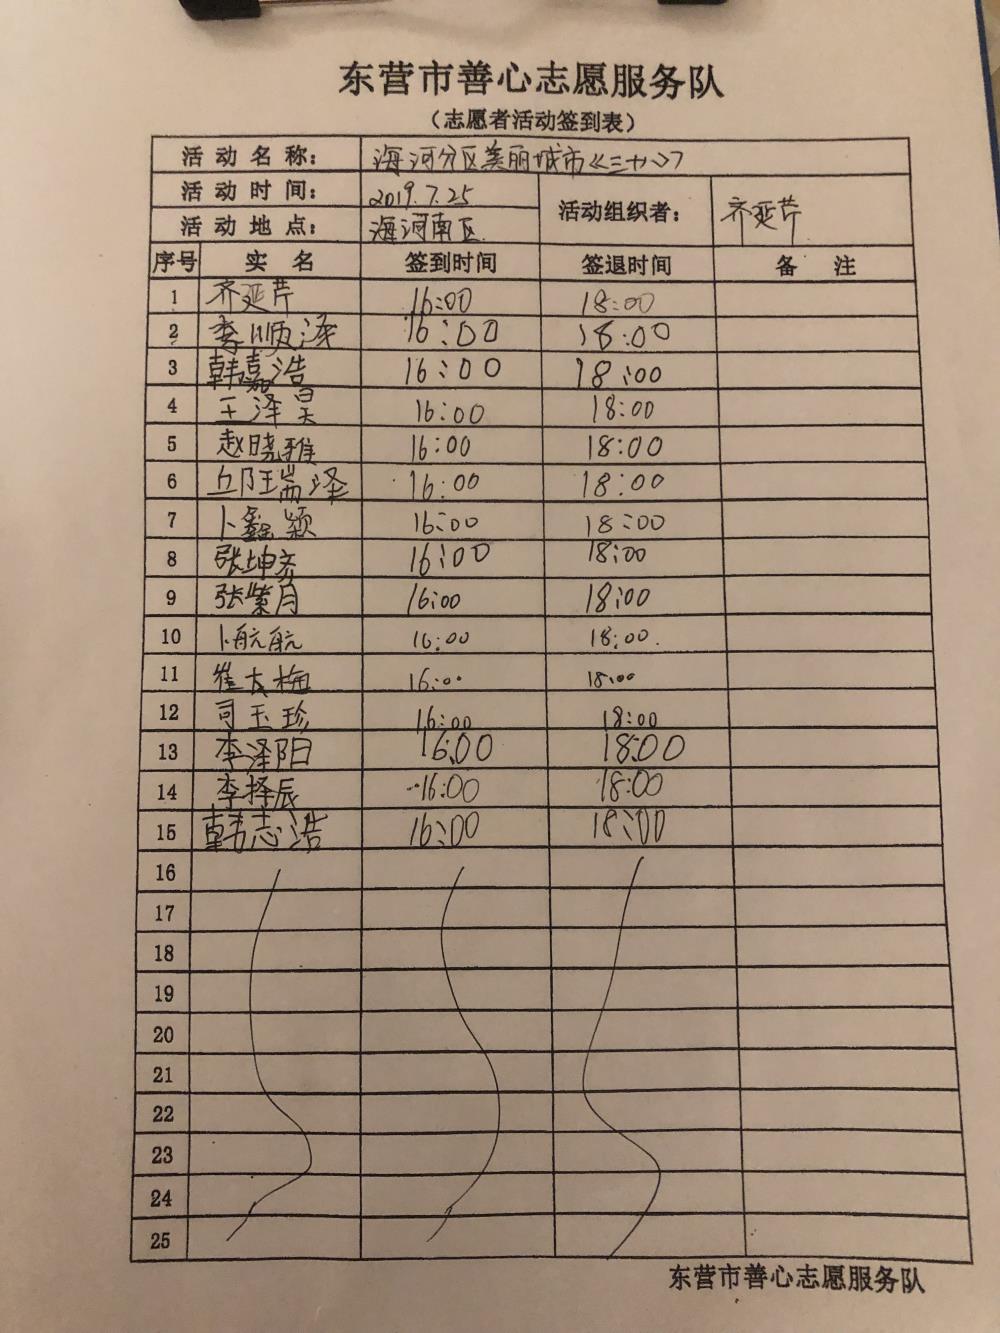 东营市善心志愿服务队
（志愿者活动签到表）
活动名称： 海河分区美丽城市
活动时间： 2019.7.25 活动组织者： 齐延芹
活动地点： 海河南区
序号 实名 签到时间 签退时间 备注
1 齐延芹 16:00 18:00
2 李顺泽 16:00 18:00
3 韩嘉浩 16:00 18:00
4 王泽昊 16:00 18:00
5 赵晓雅 16:00 18:00
6 丘陛瑞泽 16:00 18:00
7 卜鑫颖 16:00 18:00
8 张坤 16:00 18:00
9 张紫月 16:00 18:00
10 卜航航 16:00 18:00.
11 崔梅 16:00 18:00
12 司玉珍 16:00 18:00
13 李泽阳 16:00 18:00
14 李择辰 16:00 18:00
15 韩志浩 16:00 18:00
16
17
18
19
20
21
22
23
24
25
东营市善心志愿服务队